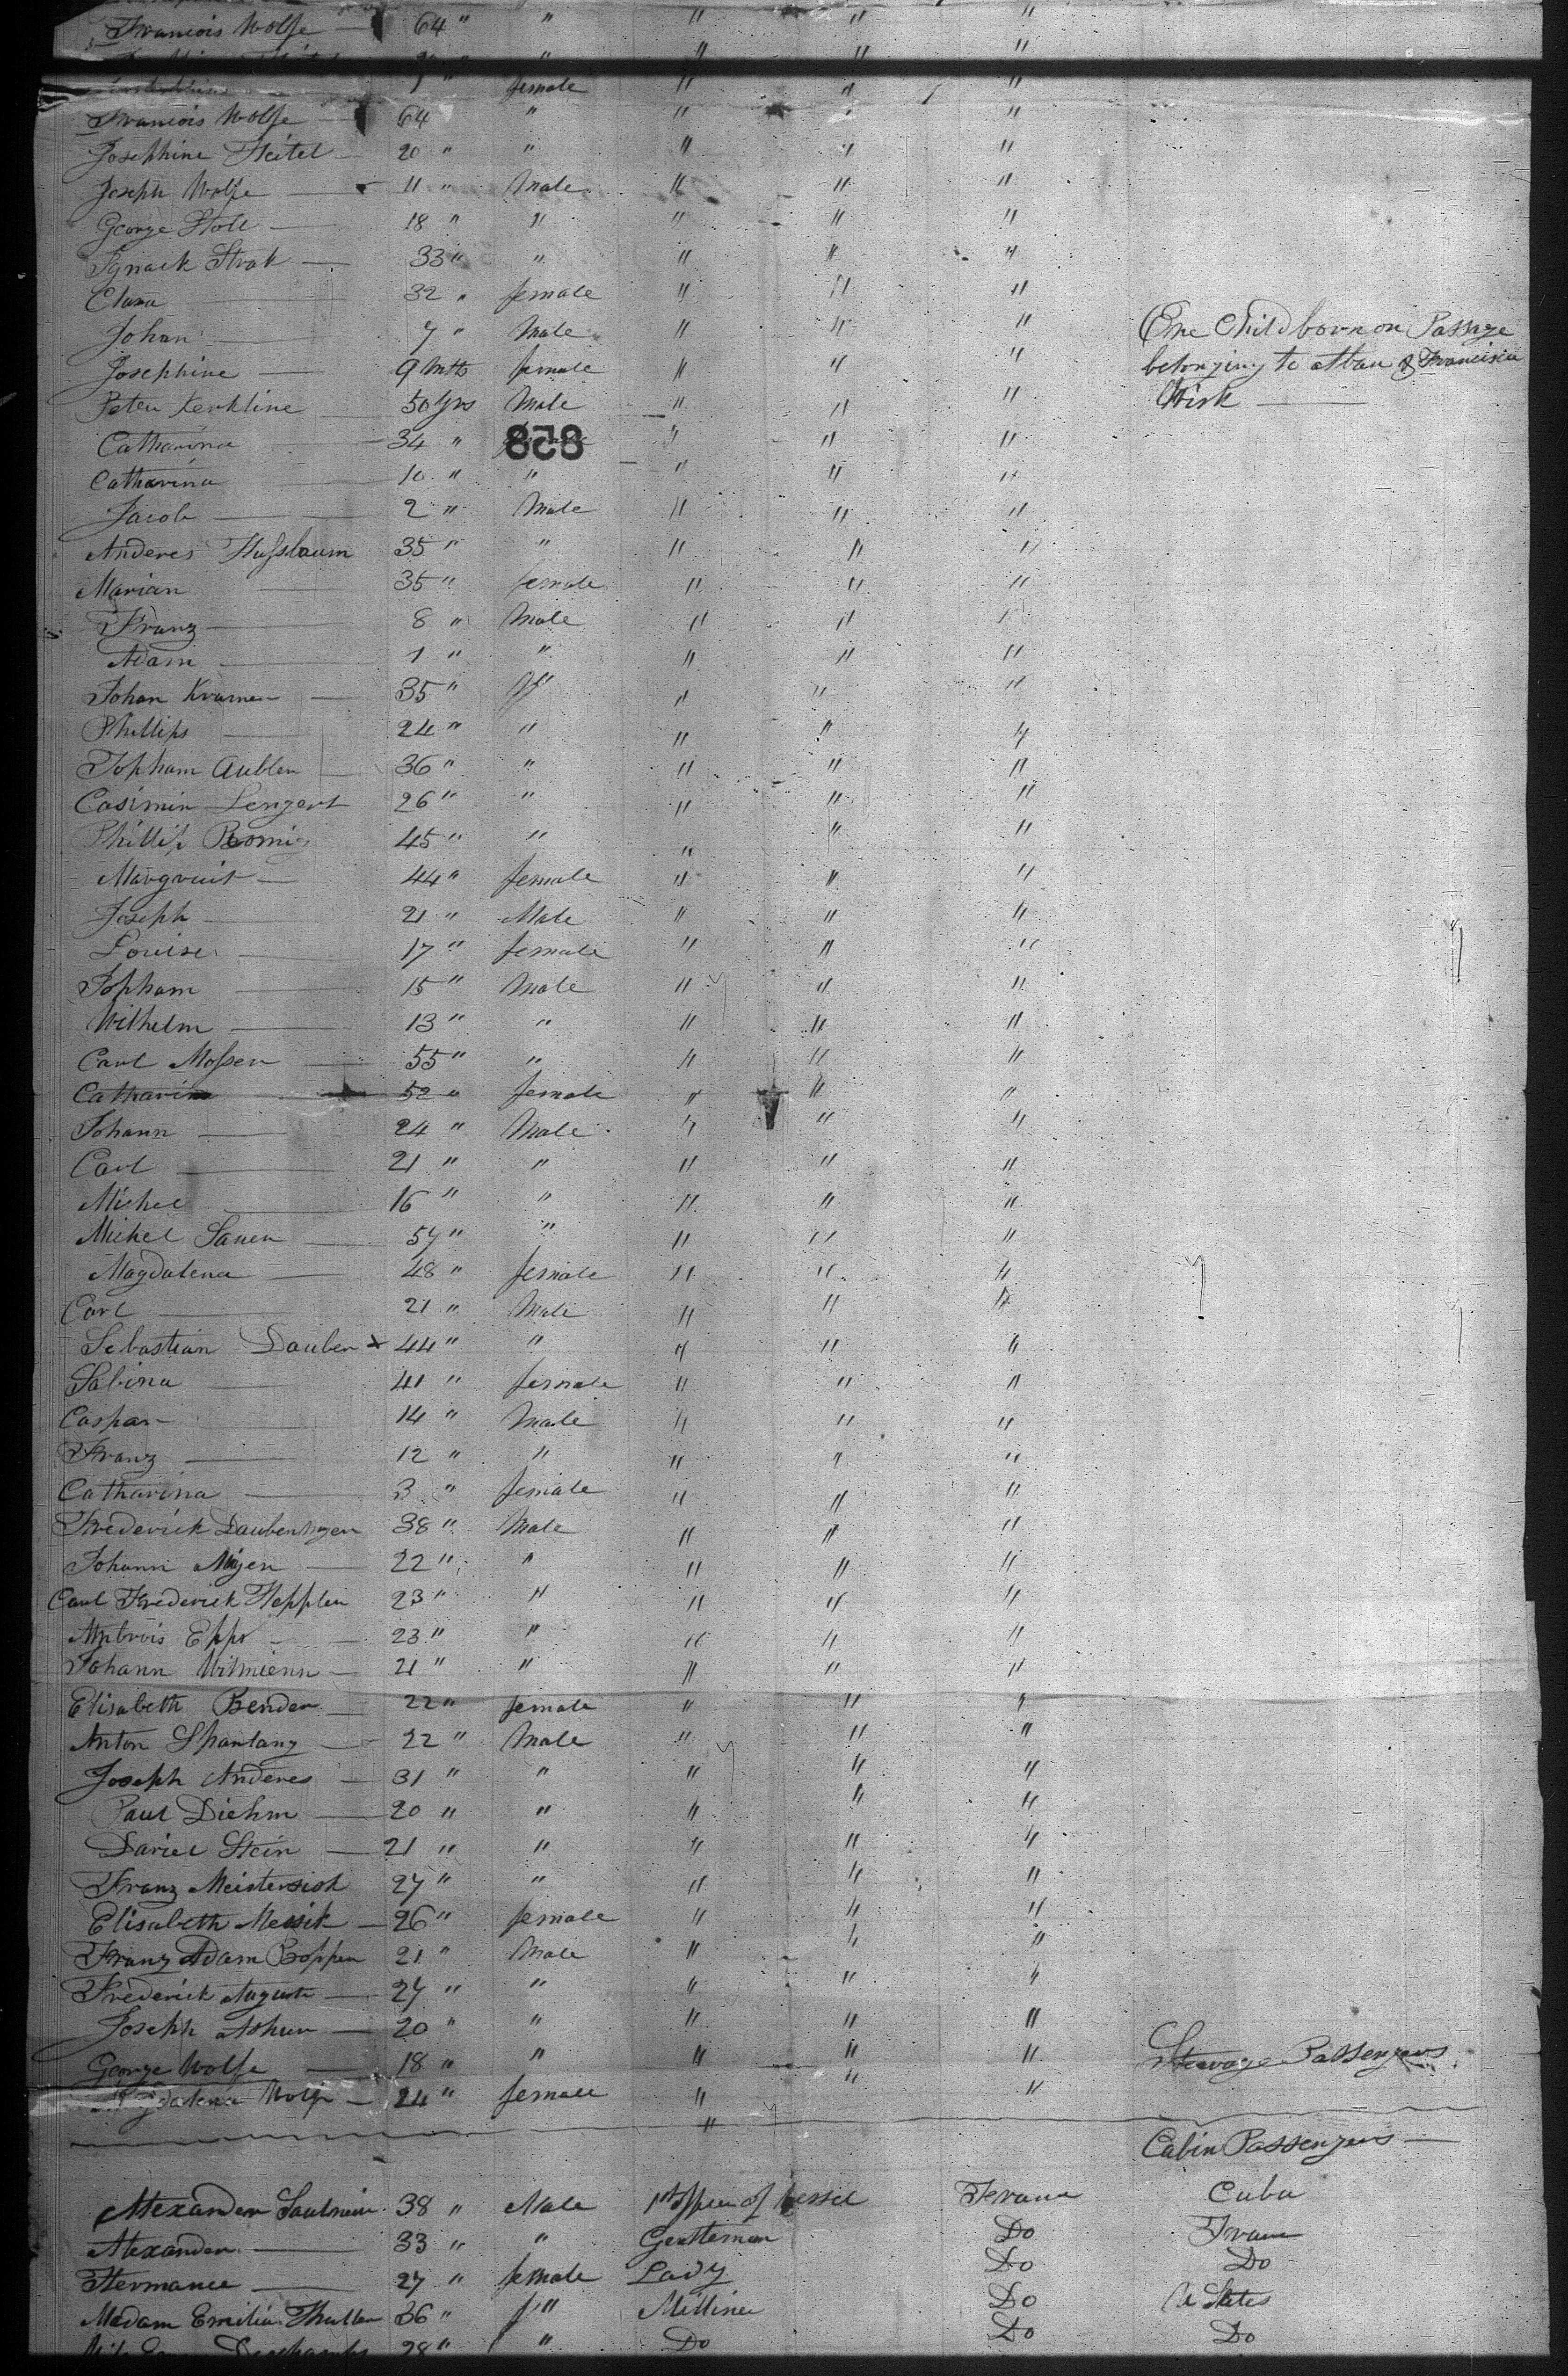 Francois Wolfe — 64 " " " " "
" " " "
" female " " "
Francois Wolfe — 64 " " " "
Josephine Heitel — 20 " " " " "
Joseph Wolfe — 11 " Male " " "
George Stoll — 18 " " " " "
Ignack Strak — 33 " " " " "
Clara — 32 " female " " "
Johan — 7 " Male " " " One Child born on Passage
Josephine — 9 Mths female " " " belonging to & Francisca
Peter Kerkline 50 Yrs Male " " " Wirk —
Catharina — 34 " 858 " " "
Catharina — 10 " " " " "
Jacob — 2 " Male " " "
Anderes Hussbaum 35 " " " " "
Marian — 35 " female " " "
Franz — 8 " Male " " "
Adam — 1 " " " " "
Johan Kramer — 35 " " " " "
Phillips — 24 " " " " "
Topham Aubler — 36 " " " " "
Casimir Lengert 26 " " " " "
Phillip Romig 45 " " " " "
Margruit — 44 " female " " "
Joseph — 21 " Male " " "
Louise — 17 " female " " "
Topham — 15 " Male " " "
Wilhelm — 13 " " " " "
Carl Mosser — 55 " " " " "
Catharina — 52 " female " " "
Johann — 24 " Male " " "
Carl — 21 " " " " "
Michel — 16 " " " " "
Michel Sauer — 57 " " " " "
Magdalena — 48 " female " " "
Carl — 21 " Male " " "
Sebastian Dauber x 44 " " " " "
Sabina — 41 " female " " "
Caspar — 14 " Male " " "
Franz — 12 " " " " "
Catharina — 3 " female " " "
Frederick Daubenhayer 38 " Male " " "
Johann Mayer — 22 " " " " "
Carl Frederick Heppler 23 " " " " "
Ambrois Epps — 23 " " " " "
Johann Witmienn — 21 " " " " "
Elisabeth Bender — 22 " female " " "
Anton Spantang — 22 " Male " " "
Joseph Anderes — 31 " " " " "
Paul Diehm — 20 " " " " "
Daniel Stein — 21 " " " " "
Franz Meistersich 27 " " " " "
Elisabeth Messik — 26 " female " " "
Franz Adam Bopper 21 " Male " " "
Frederick August — 27 " " " " "
Joseph Ashur — 20 " " " " "
George Wolfe — 18 " " " " " Steerage Passengers
Magdalena Wolfe — 24 " female " " "
"
Cabin Passengers —
Alexander Saulnier 38 " Male of Vessel France Cuba
Alexander — 33 " " Gentleman Do France
Hermance — 27 " female Lady Do Do
Madam Emilia Thuller 36 " f " Milliner Do U States
28 " " Do Do Do